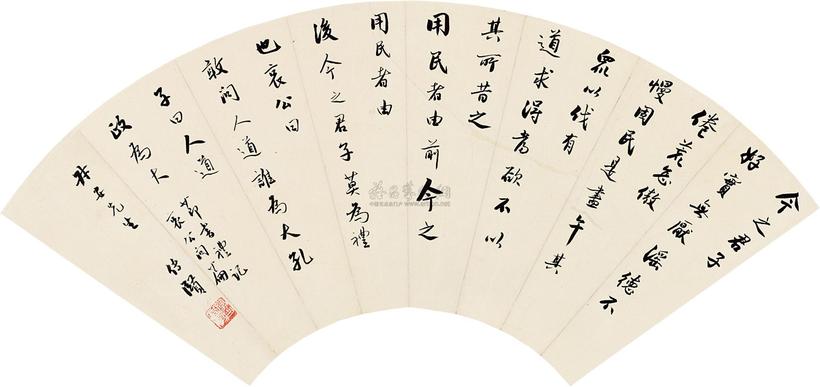 今之君子
好實無厭淫德不
倦荒怠傲
慢固民是盡午其
眾以伐有
道求得當欲不以
其所昔之
用民者由前今之
用民者由
後今之君子莫為禮
也哀公曰
敢問人道誰為大孔
子曰人道
政為大
節書禮記
哀公問篇
傳賢
先生